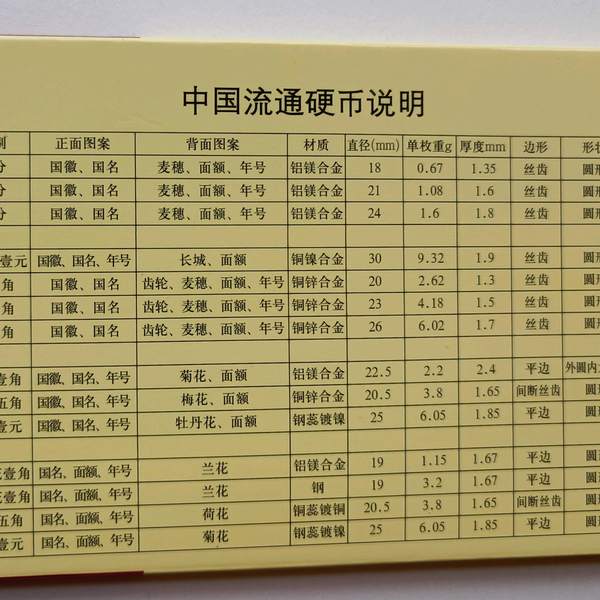 中国流通硬币说明
别 正面图案 背面图案 材质 直径(mm) 单枚重g 厚度mm 边形 形状
分 国徽、国名 麦穗、面额、年号 铝镁合金 18 0.67 1.35 丝齿 圆形
分 国徽、国名 麦穗、面额、年号 铝镁合金 21 1.08 1.6 丝齿 圆形
分 国徽、国名 麦穗、面额、年号 铝镁合金 24 1.6 1.8 丝齿 圆形
壹元 国徽、国名、年号 长城、面额 铜镍合金 30 9.32 1.9 丝齿 圆形
角 国徽、国名 齿轮、麦穗、面额、年号 铜锌合金 20 2.62 1.3 丝齿 圆形
角 国徽、国名 齿轮、麦穗、面额、年号 铜锌合金 23 4.18 1.5 丝齿 圆形
角 国徽、国名 齿轮、麦穗、面额、年号 铜锌合金 26 6.02 1.7 丝齿 圆形
壹角 国徽、国名、年号 菊花、面额 铝镁合金 22.5 2.2 2.4 平边 外圆内
五角 国徽、国名、年号 梅花、面额 铜锌合金 20.5 3.8 1.65 间断丝齿 圆形
元 国徽、国名、年号 牡丹花、面额 钢蕊镀镍 25 6.05 1.85 平边 圆形
壹角 国名、面额、年号 兰花 铝镁合金 19 1.15 1.67 平边 圆形
壹角 国名、面额、年号 兰花 钢 19 3.2 1.67 平边 圆形
五角 国名、面额、年号 荷花 钢蕊镀铜 20.5 3.8 1.65 间断丝齿 圆形
壹元 国名、面额、年号 菊花 钢蕊镀镍 25 6.05 1.85 平边 圆形